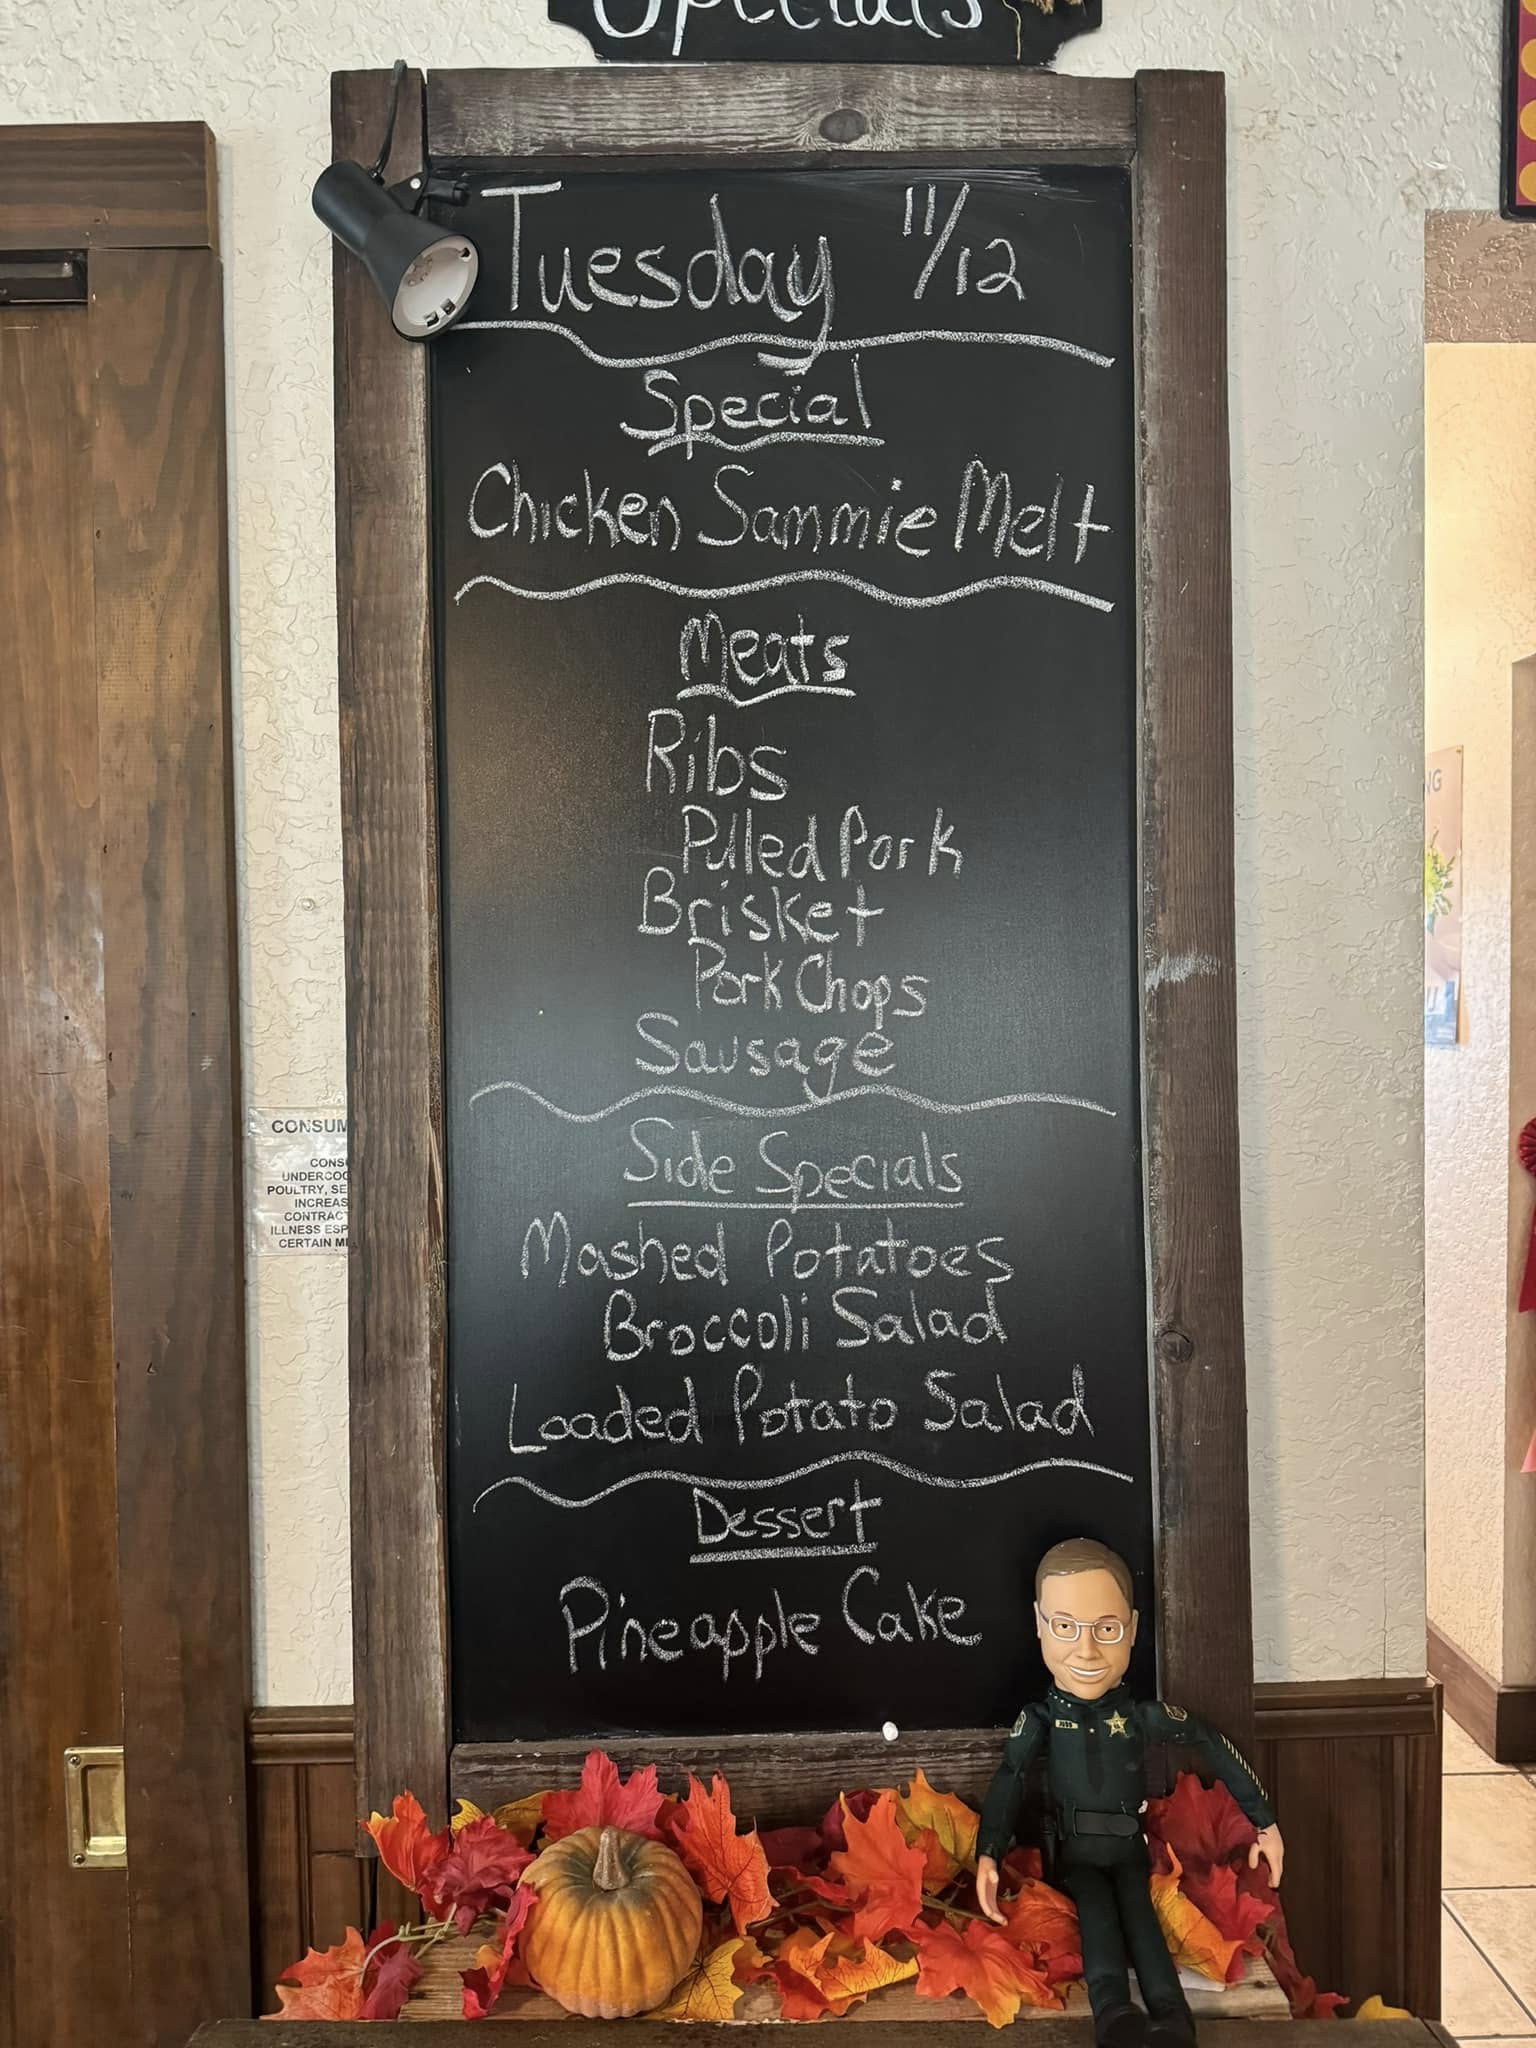 Specials
Tuesday 11/12
Special
Chicken Sammie Melt
Meats
Ribs
Pulled Pork
Brisket
Pork Chops
Sausage
Side Specials
Mashed Potatoes
Broccoli Salad
Loaded Potato Salad
Dessert
Pineapple Cake
CONSUM
CONS
UNDERCOO
POULTRY, SE
INCREAS
CONTRACT
ILLNESS ESP
CERTAIN M
NG